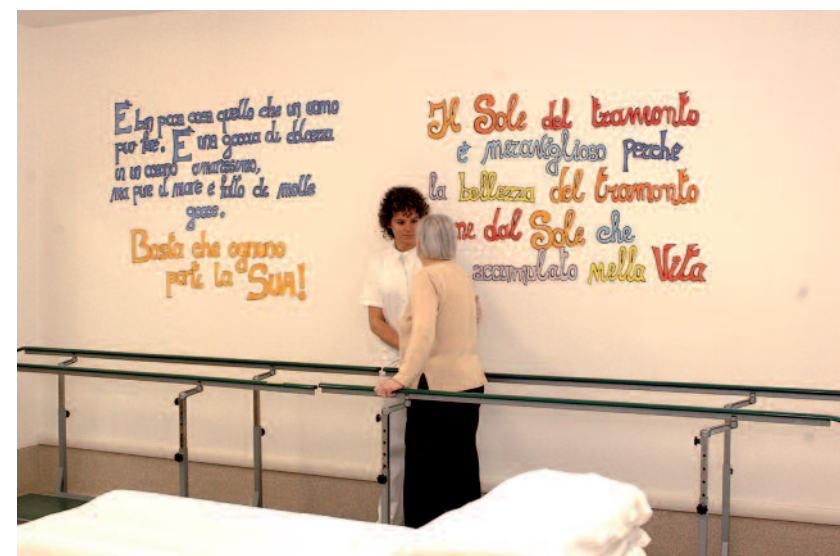 È ben poca cosa quello che un uomo
può fare. È una goccia di dolcezza
in un oceano amarissimo,
ma pure il mare è fatto de molte
gocce.
Basta che ognuno
porti la SUA!
Il Sole del tramonto
è meraviglioso perché
la bellezza del tramonto
ne dal Sole che
accumulato nella Vita